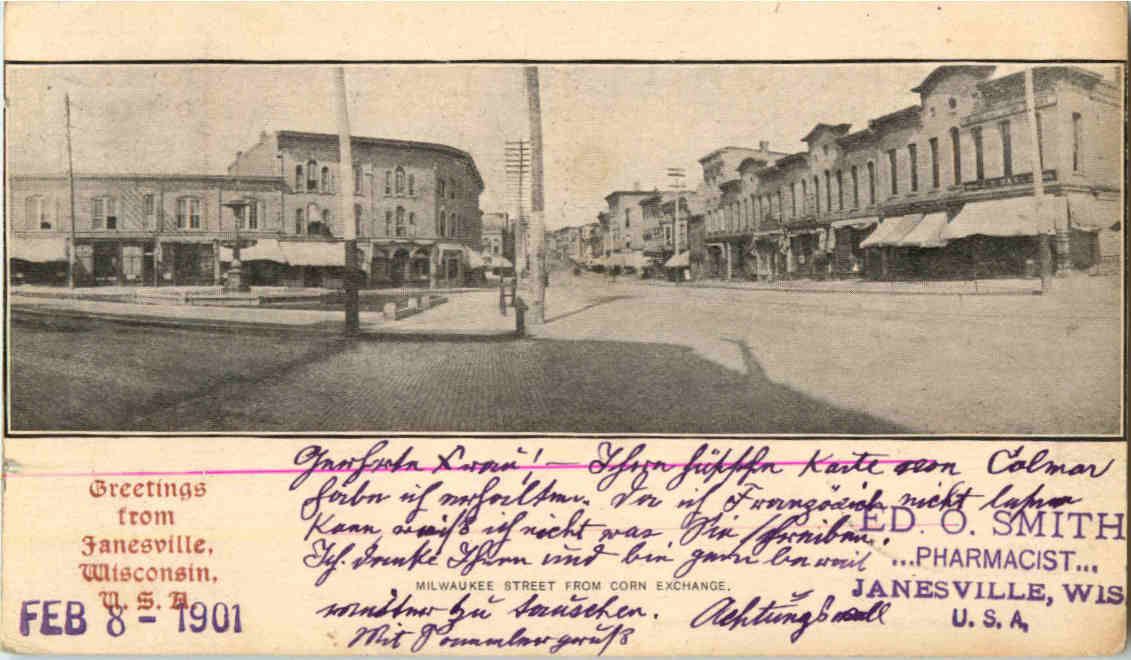 Geehrte Frau! — Ihre hübsche Karte von Colmar
habe ich erhalten. Da ich Französich nicht lesen
kann weiß ich nicht was Sie schreiben.
Ich danke Ihnen und bin gern bereit
MILWAUKEE STREET FROM CORN EXCHANGE.
weiter zu tauschen. Achtungsvoll
Mit Sammlergruß
Greetings
from
Janesville,
Wisconsin,
U. S. A.
FEB 8 - 1901
ED. O. SMITH
...PHARMACIST...
JANESVILLE, WIS
U. S. A,